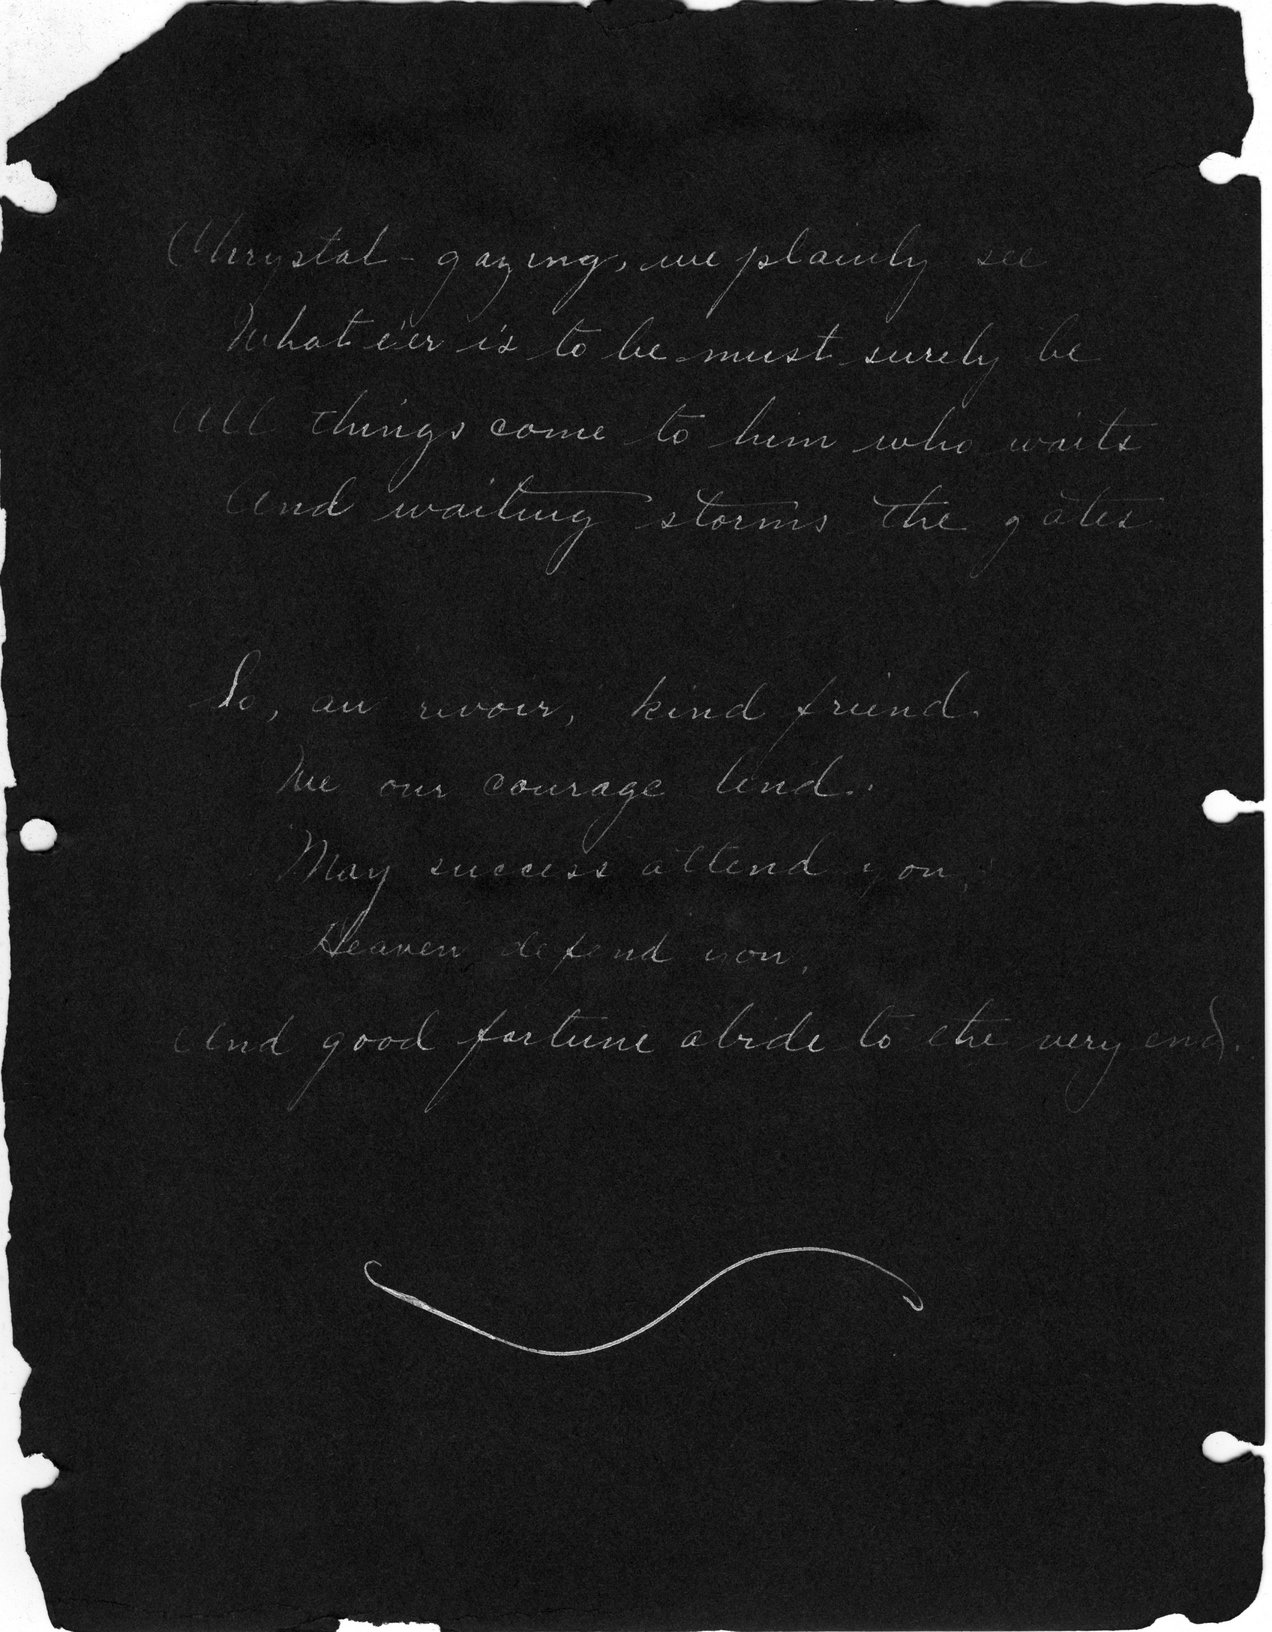 Chrystal-gazing, we plainly see
Whate'er is to be must surely be
All things come to him who waits
And waiting storms the gates
So, au revoir, kind friend.
We our courage lend.
May success attend you,
Heaven defend you,
And good fortune abide to the very end.